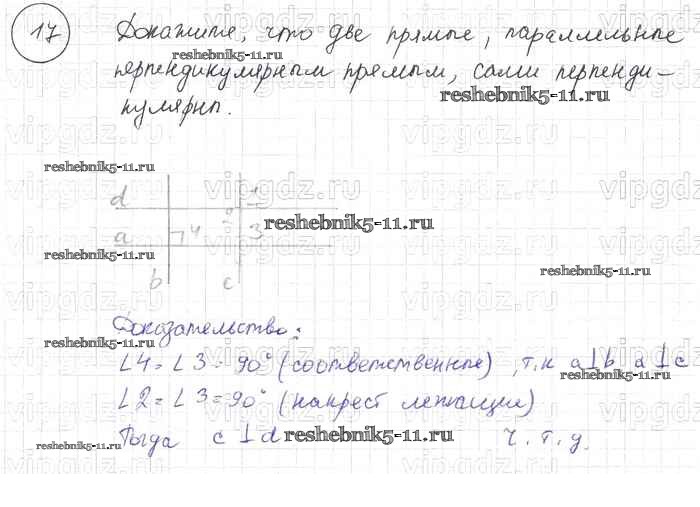 17 Докажите, что две прямые, параллельные
reshebnik5-11.ru
перпендикулярным прямым, сами перпенди-
reshebnik5-11.ru
кулярны.
reshebnik5-11.ru
vipgdz.ru vipgdz.ru vipgdz.ru
d 1
2
reshebnik5-11.ru
a 4 3
reshebnik5-11.ru
reshebnik5-11.ru
b c
Доказательство:
reshebnik5-11.ru
∠4=∠3=90° (соответственные), т.к a⊥b a⊥c
reshebnik5-11.ru
∠2=∠3=90° (накрест лежащие)
Тогда c⊥d ч.т.д.
reshebnik5-11.ru
reshebnik5-11.ru